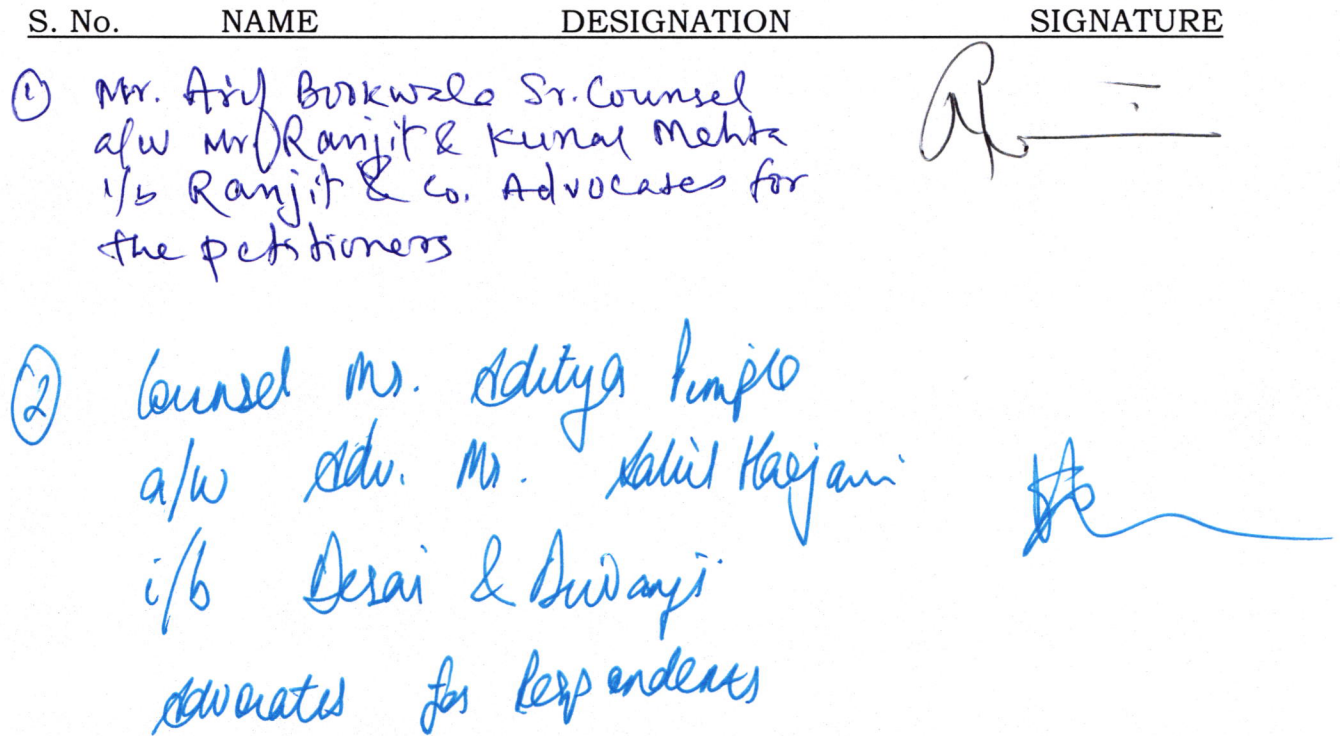 S. No. NAME DESIGNATION SIGNATURE
1 Mr. Arif Bookwala Sr. Counsel
a/w Mr Ranjit & Kunal Mehta
i/b Ranjit & Co. Advocates for
the petitioners
2 Counsel Mr. Aditya Pimple
a/w Adv. Mr. Sahil Harjani
i/b Desai & Diwanji
Advocates for Respondents